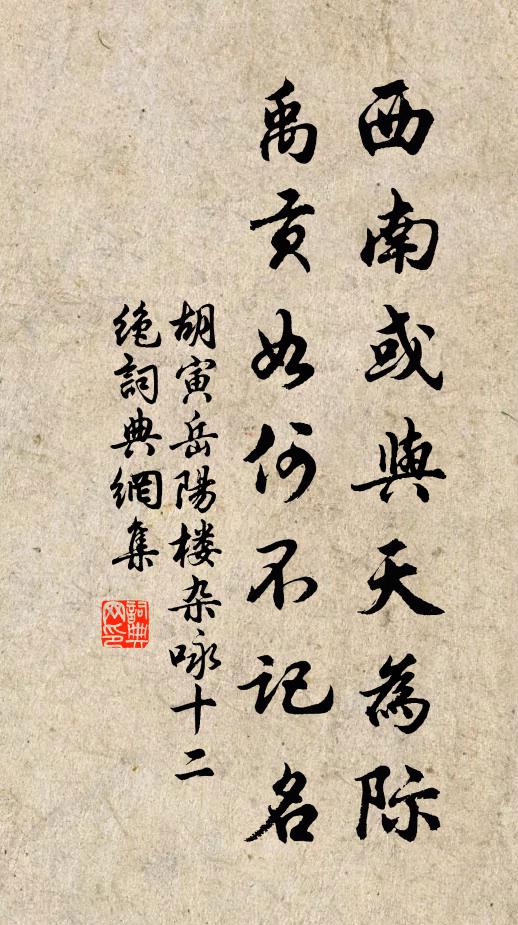 西南或與天為際
禹貢如何不記名
胡寅岳陽楼杂咏十二
绝詞典網集
詞典网印